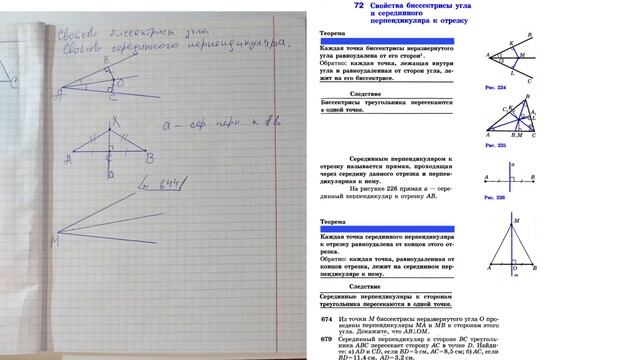 Свойство биссектрисы угла.
Свойство серединного перпендикуляра.
B
A
D
C
C
X
a – сер перп к AB
A
C
B
a
M
72 Свойства биссектрисы угла
и серединного
перпендикуляра к отрезку
Теорема
Каждая точка биссектрисы неразвернутого
угла равноудалена от его сторон¹.
Обратно: каждая точка, лежащая внутри
угла и равноудаленная от сторон угла, ле-
жит на его биссектрисе.
Следствие
Биссектрисы треугольника пересекаются
в одной точке.
B
K
A
M
L
C
Рис. 224
Рис. 225
Серединным перпендикуляром к
отрезку называется прямая, проходящая
через середину данного отрезка и перпен-
дикулярная к нему.
На рисунке 226 прямая a — сере-
динный перпендикуляр к отрезку AB.
a
A
B
Рис. 226
Теорема
Каждая точка серединного перпендикуляра
к отрезку равноудалена от концов этого от-
резка.
Обратно: каждая точка, равноудаленная от
концов отрезка, лежит на серединном пер-
пендикуляре к нему.
Следствие
Серединные перпендикуляры к сторонам
треугольника пересекаются в одной точке.
M
A
O
B
m
674 Из точки M биссектрисы неразвернутого угла O про-
ведены перпендикуляры MA и MB к сторонам этого
угла. Докажите, что AB⊥OM.
679 Серединный перпендикуляр к стороне BC треуголь-
ника ABC пересекает сторону AC в точке D. Найди-
те: а) AD и CD, если BD=5 см, AC=8,5 см; б) AC, если
BD=11,4 см, AD=3,2 см.